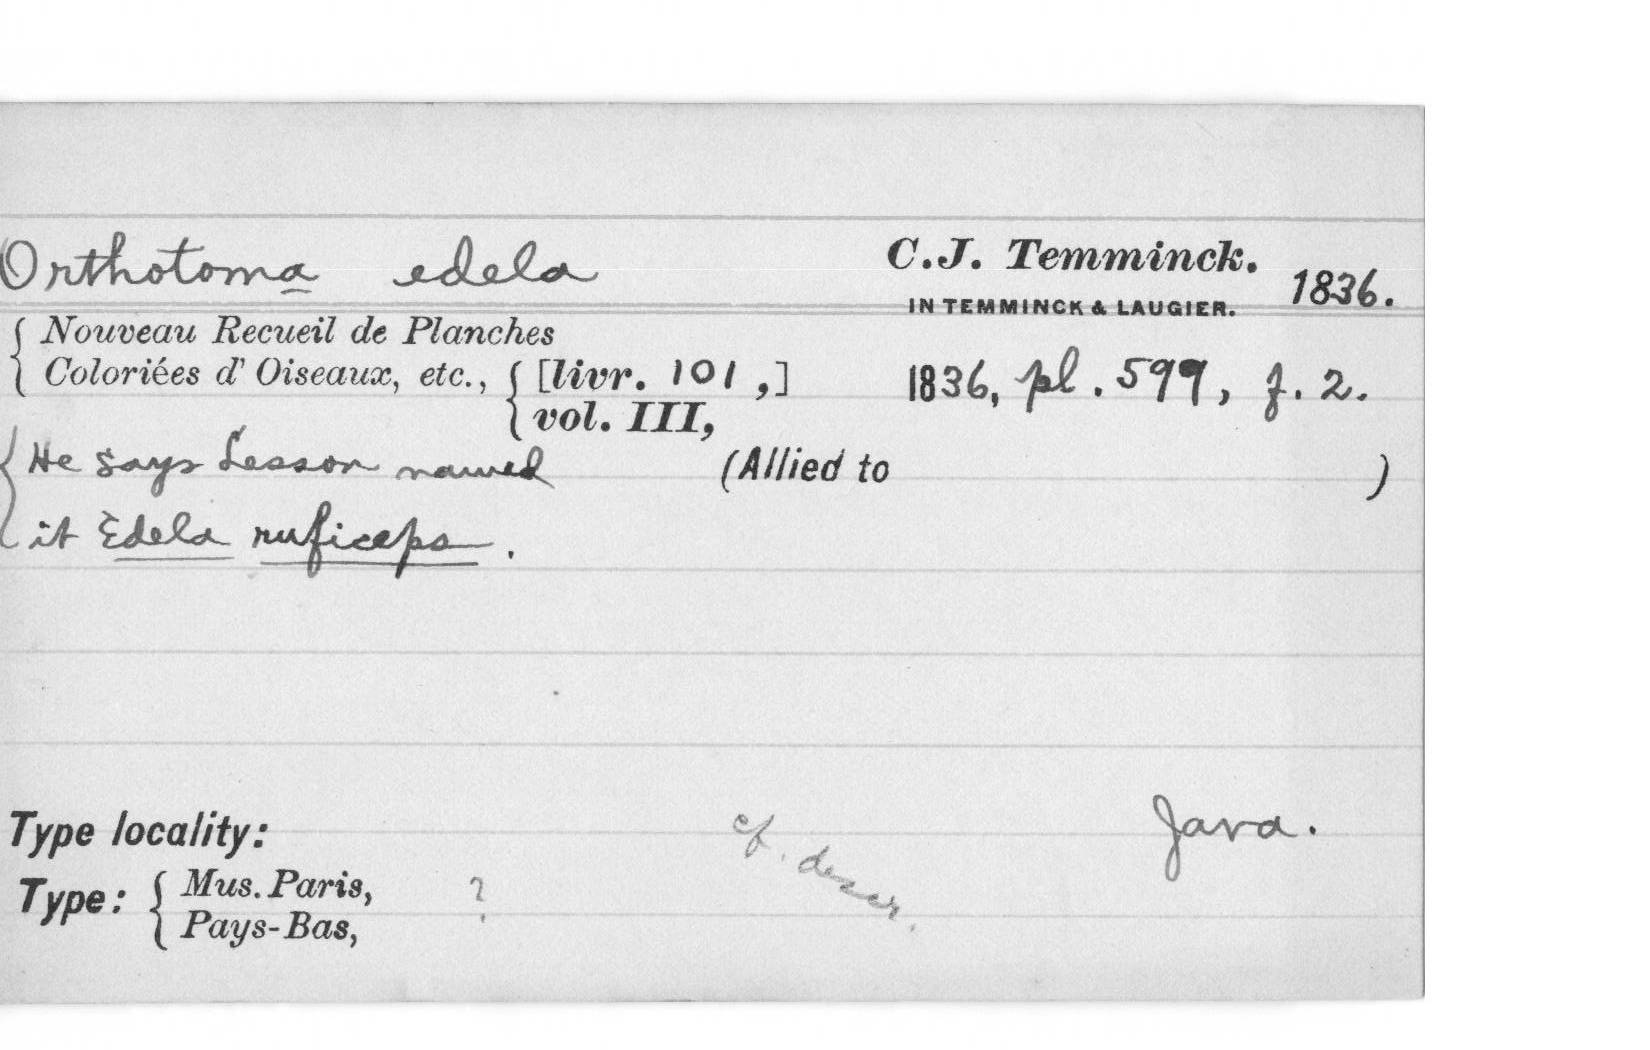 Orthotoma edela C.J. Temminck. 1836.
IN TEMMINCK & LAUGIER.
Nouveau Recueil de Planches
Coloriées d' Oiseaux, etc., [livr. 101,] 1836, pl. 599, f. 2.
vol. III,
He says Lesson named (Allied to )
it Edela ruficeps.
Type locality: Java.
cf. descr.
Type: Mus. Paris, ?
Pays-Bas,